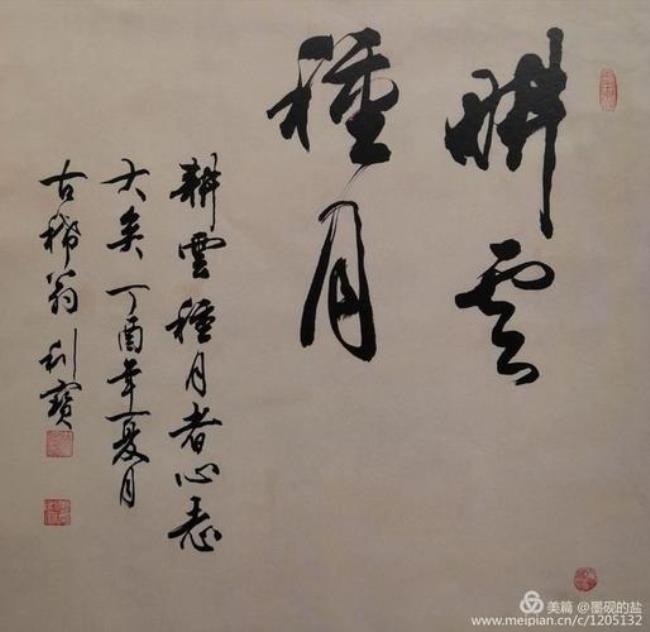 耕雲
種月
耕雲種月者心志
大矣丁酉年夏月
古稀翁利寶
美篇 @墨砚的盐
www.meipian.cn/c/1205132